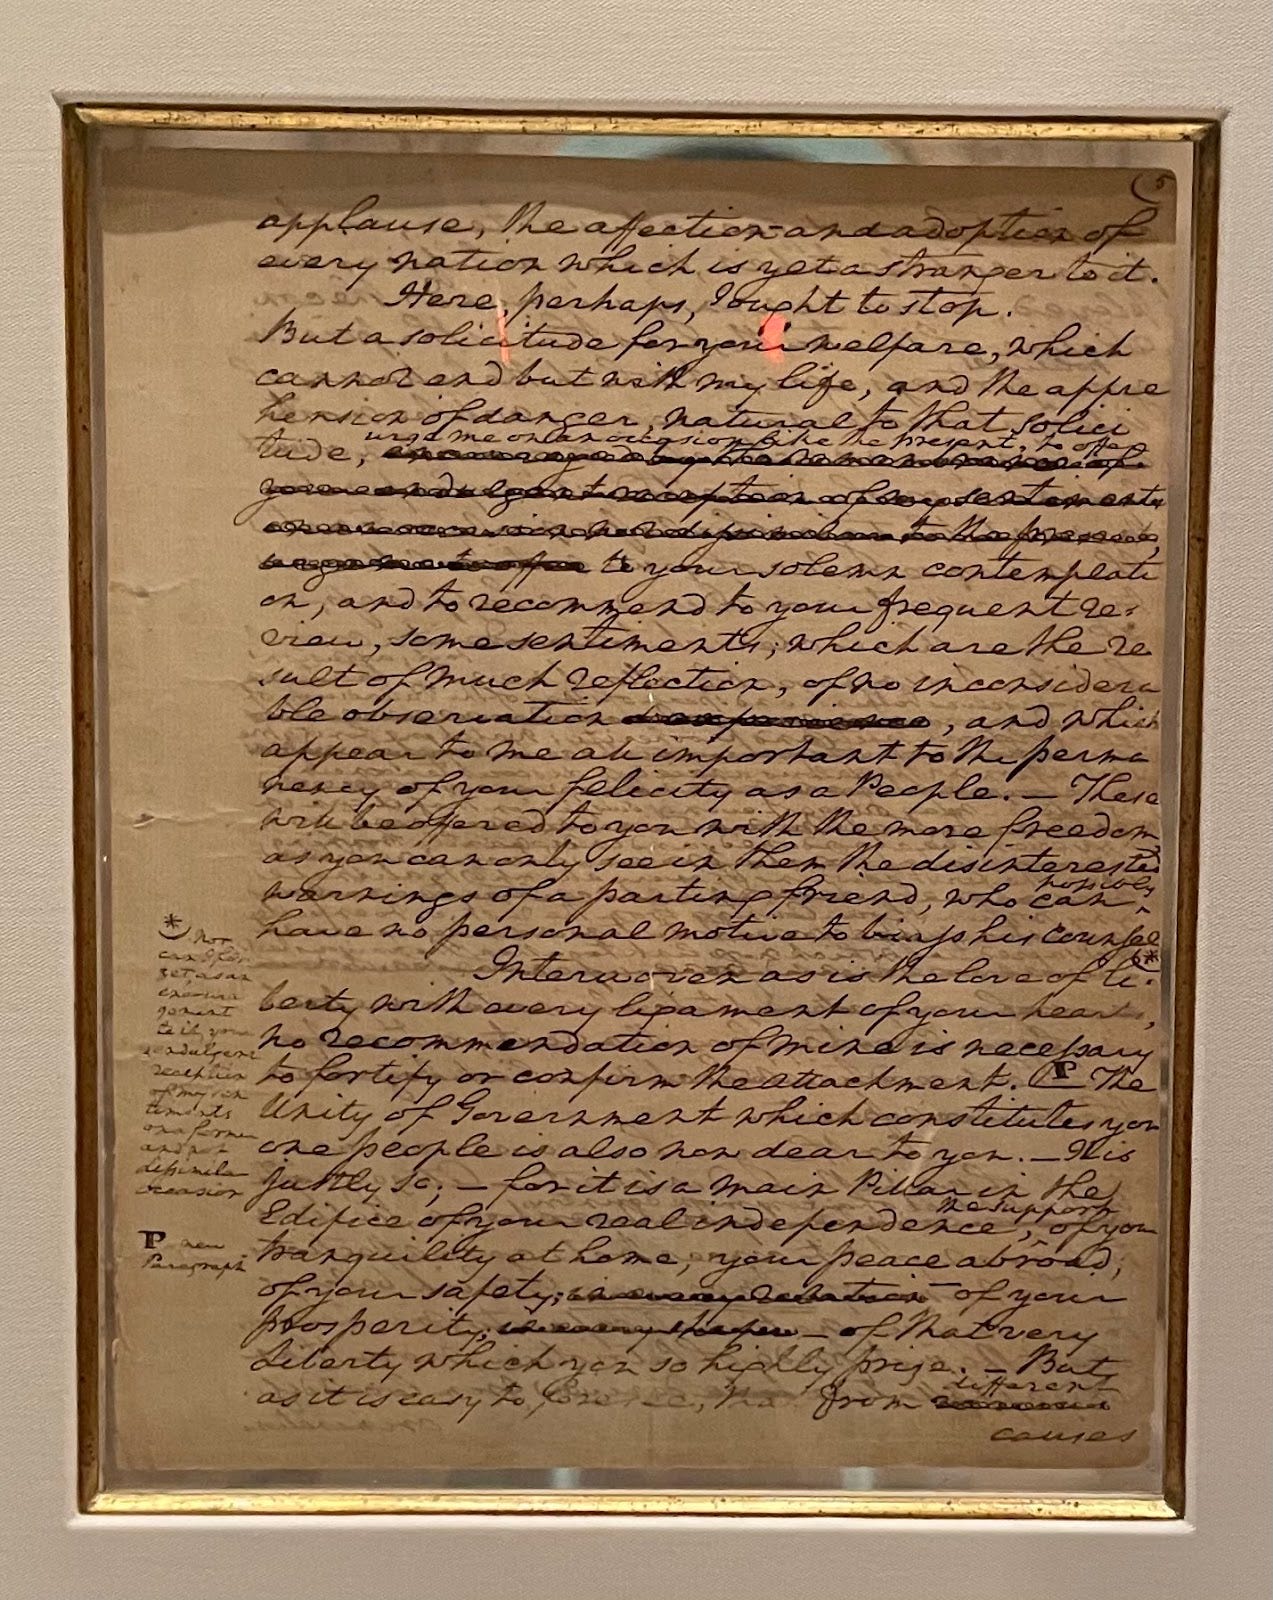 (5
applause, the affection and adoption of
every nation which is yet a stranger to it.
Here, perhaps, I ought to stop.
But a solicitude for your welfare, which
cannot end but with my life, and the appre
hension of danger, natural to that solici
urge me on an occasion like the present, to offer
tude, encouraged by the remembrance of
your indulgent reception of my sentiments
on an occasion not dissimilar to the present,
urge me to offer to your solemn contemplati
on, and to recommend to your frequent re-
view, some sentiments; which are the re
sult of much reflection, of no inconsidera
ble observation and experience, and which
appear to me all important to the perma
nency of your felicity as a People. — These
will be offered to you with the more freedom,
as you can only see in them the disinterested
possibly
warnings of a parting friend, who can ^
have no personal motive to biass his counsel
*
Interwoven as is the love of li-
berty with every ligament of your hearts,
no recommendation of mine is necessary
to fortify or confirm the attachment. P The
Unity of Government which constitutes you
one people is also now dear to you. — It is
justly so; — for it is a main Pillar in the
the support
Edifice of your real independence, ^ of your
tranquility at home; your peace abroad;
of your safety; in every relation — of your
prosperity; in every shape — of that very
Liberty which you so highly prize. — But,
different
as it is easy to foresee, that from various
causes
*
Nor
can I for
get, as an
encoura
gement
to it, your
indulgent
reception
of my sen
timents
on a former
and not
dissimilar
occasion
P new
Paragraph